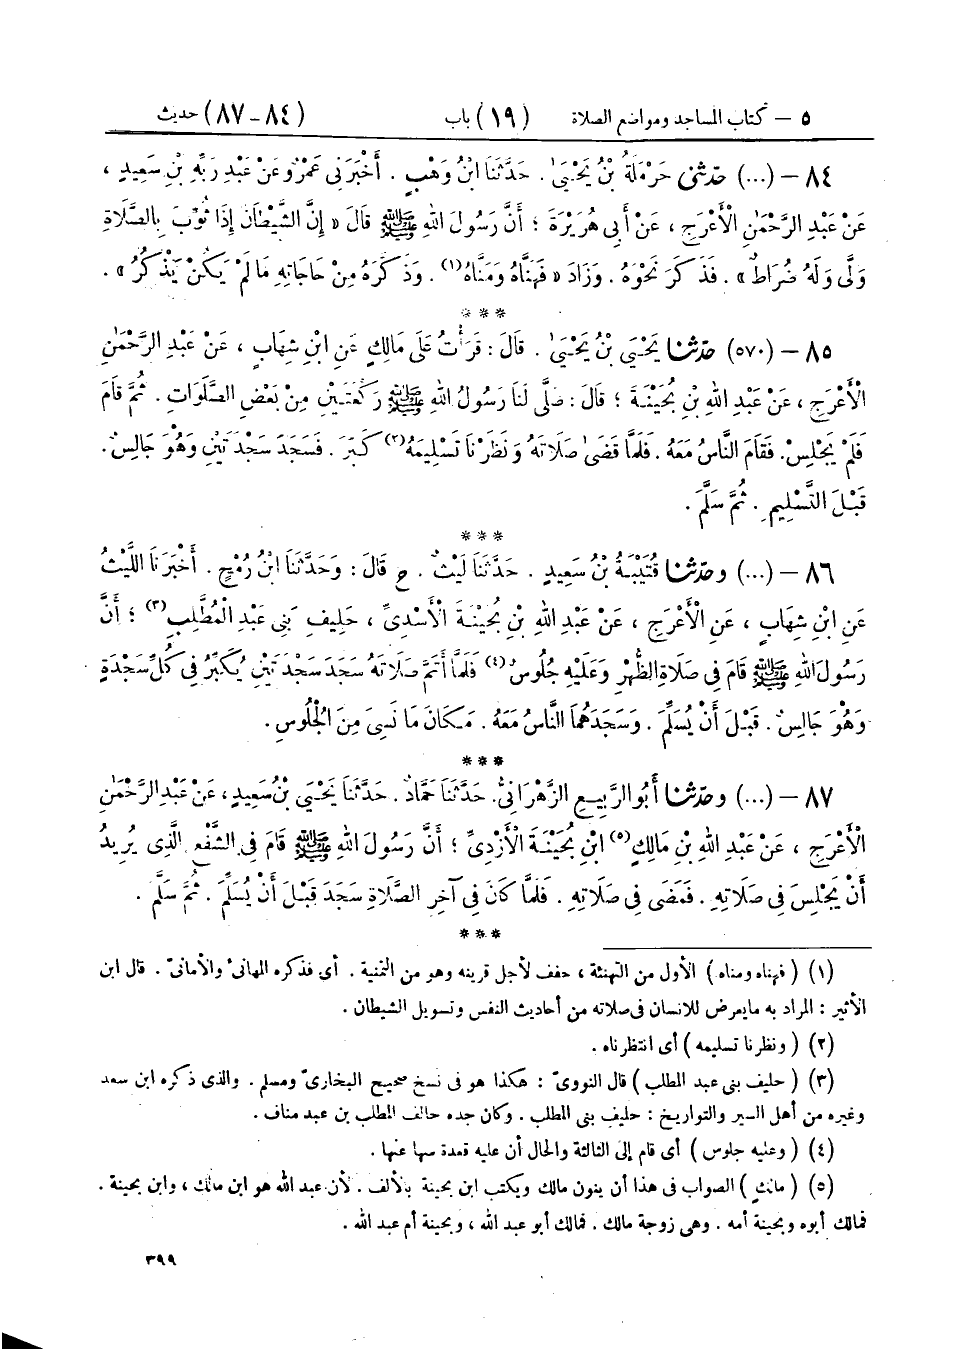 ٥ – كتاب المساجد ومواضع الصلاة (١٩) باب (٨٤-٨٧) حديث
٨٤ – (...) حدّثني حَرْمَلَةُ بْنُ يَحْيَىٰ . حَدَّثَنَا ابْنُ وَهْبٍ . أَخْبَرَنِي عَمْرٌو عَنْ عَبْدِ رَبِّهِ بْنِ سَعِيدٍ ،
عَنْ عَبْدِ الرَّحْمَٰنِ الْأَعْرَجِ ، عَنْ أَبِي هُرَيْرَةَ ؛ أَنَّ رَسُولَ اللهِ ﷺ قَالَ « إِنَّ الشَّيْطَانَ إِذَا ثُوِّبَ بِالصَّلَاةِ
وَلَّى وَلَهُ ضُرَاطٌ » . فَذَكَرَ نَحْوَهُ . وَزَادَ « فَهَنَّاهُ وَمَنَّاهُ(١) . وَذَكَّرَهُ مِنْ حَاجَاتِهِ مَا لَمْ يَكُنْ يَذْكُرُ » .
***
٨٥ – (٥٧٠) حدّثنا يَحْيَىٰ بْنُ يَحْيَىٰ . قَالَ : قَرَأْتُ عَلَى مَالِكٍ عَنِ ابْنِ شِهَابٍ ، عَنْ عَبْدِ الرَّحْمَٰنِ
الْأَعْرَجِ ، عَنْ عَبْدِ اللهِ بْنِ بُحَيْنَةَ ؛ قَالَ : صَلَّى لَنَا رَسُولُ اللهِ ﷺ رَكْعَتَيْنِ مِنْ بَعْضِ الصَّلَوَاتِ . ثُمَّ قَامَ
فَلَمْ يَجْلِسْ. فَقَامَ النَّاسُ مَعَهُ . فَلَمَّا قَضَىٰ صَلَاتَهُ وَنَظَرْنَا تَسْلِيمَهُ(٢) كَبَّرَ . فَسَجَدَ سَجْدَتَيْنِ وَهُوَ جَالِسٌ.
قَبْلَ التَّسْلِيمِ . ثُمَّ سَلَّمَ .
***
٨٦ – (...) وحدّثنا قُتَيْبَةُ بْنُ سَعِيدٍ . حَدَّثَنَا لَيْثٌ . ح قَالَ : وَحَدَّثَنَا ابْنُ رُمْحٍ . أَخْبَرَنَا اللَّيْثُ
عَنِ ابْنِ شِهَابٍ ، عَنِ الْأَعْرَجِ ، عَنْ عَبْدِ اللهِ بْنِ بُحَيْنَةَ الْأَسْدِيِّ ، حَلِيفِ بَنِي عَبْدِ الْمُطَّلِبِ(٣) ؛ أَنَّ
رَسُولَ اللهِ ﷺ قَامَ فِي صَلَاةِ الظُّهْرِ وَعَلَيْهِ جُلُوسٌ(٤) فَلَمَّا أَتَمَّ صَلَاتَهُ سَجَدَ سَجْدَتَيْنِ يُكَبِّرُ فِي كُلِّ سَجْدَةٍ
وَهُوَ جَالِسٌ . قَبْلَ أَنْ يُسَلِّمَ . وَسَجَدَهُمَا النَّاسُ مَعَهُ . مَكَانَ مَا نَسِيَ مِنَ الْجُلُوسِ .
***
٨٧ – (...) وحدّثنا أَبُو الرَّبِيعِ الزَّهْرَانِيُّ. حَدَّثَنَا حَمَّادٌ . حَدَّثَنَا يَحْيَىٰ بْنُ سَعِيدٍ ، عَنْ عَبْدِ الرَّحْمَٰنِ
الْأَعْرَجِ ، عَنْ عَبْدِ اللهِ بْنِ مَالِكٍ(٥) ابْنِ بُحَيْنَةَ الْأَزْدِيِّ ؛ أَنَّ رَسُولَ اللهِ ﷺ قَامَ فِي الشَّفْعِ الَّذِي يُرِيدُ
أَنْ يَجْلِسَ فِي صَلَاتِهِ . فَمَضَى فِي صَلَاتِهِ . فَلَمَّا كَانَ فِي آخِرِ الصَّلَاةِ سَجَدَ قَبْلَ أَنْ يُسَلِّمَ . ثُمَّ سَلَّمَ .
***
(١) ( فهناه ومناه ) الأول من التهنئة ، خفف لأجل قرينه وهو من التمنية . أى فذكره المهانىء والأمانىّ . قال ابن
الأثير : المراد به مايعرض للانسان فى صلاته من أحاديث النفس وتسويل الشيطان .
(٢) ( ونظرنا تسليمه ) أى انتظرناه .
(٣) ( حليف بنى عبد المطلب ) قال النووىّ : هكذا هو فى نسخ صحيح البخارىّ ومسلم . والذى ذكره ابن سعد
وغيره من أهل السير والتواريخ : حليف بنى المطلب . وكان جده حالف المطلب بن عبد مناف .
(٤) ( وعليه جلوس ) أى قام إلى الثالثة والحال أن عليه قعدة سها عنها .
(٥) ( مالك ) الصواب فى هذا أن ينون مالك ويكتب ابن بحينة بالألف . لأن عبد الله هو ابن مالك ، وابن بحينة .
فمالك أبوه وبحينة أمه . وهى زوجة مالك . فمالك أبو عبد الله ، وبحينة أم عبد الله .
٣٩٩